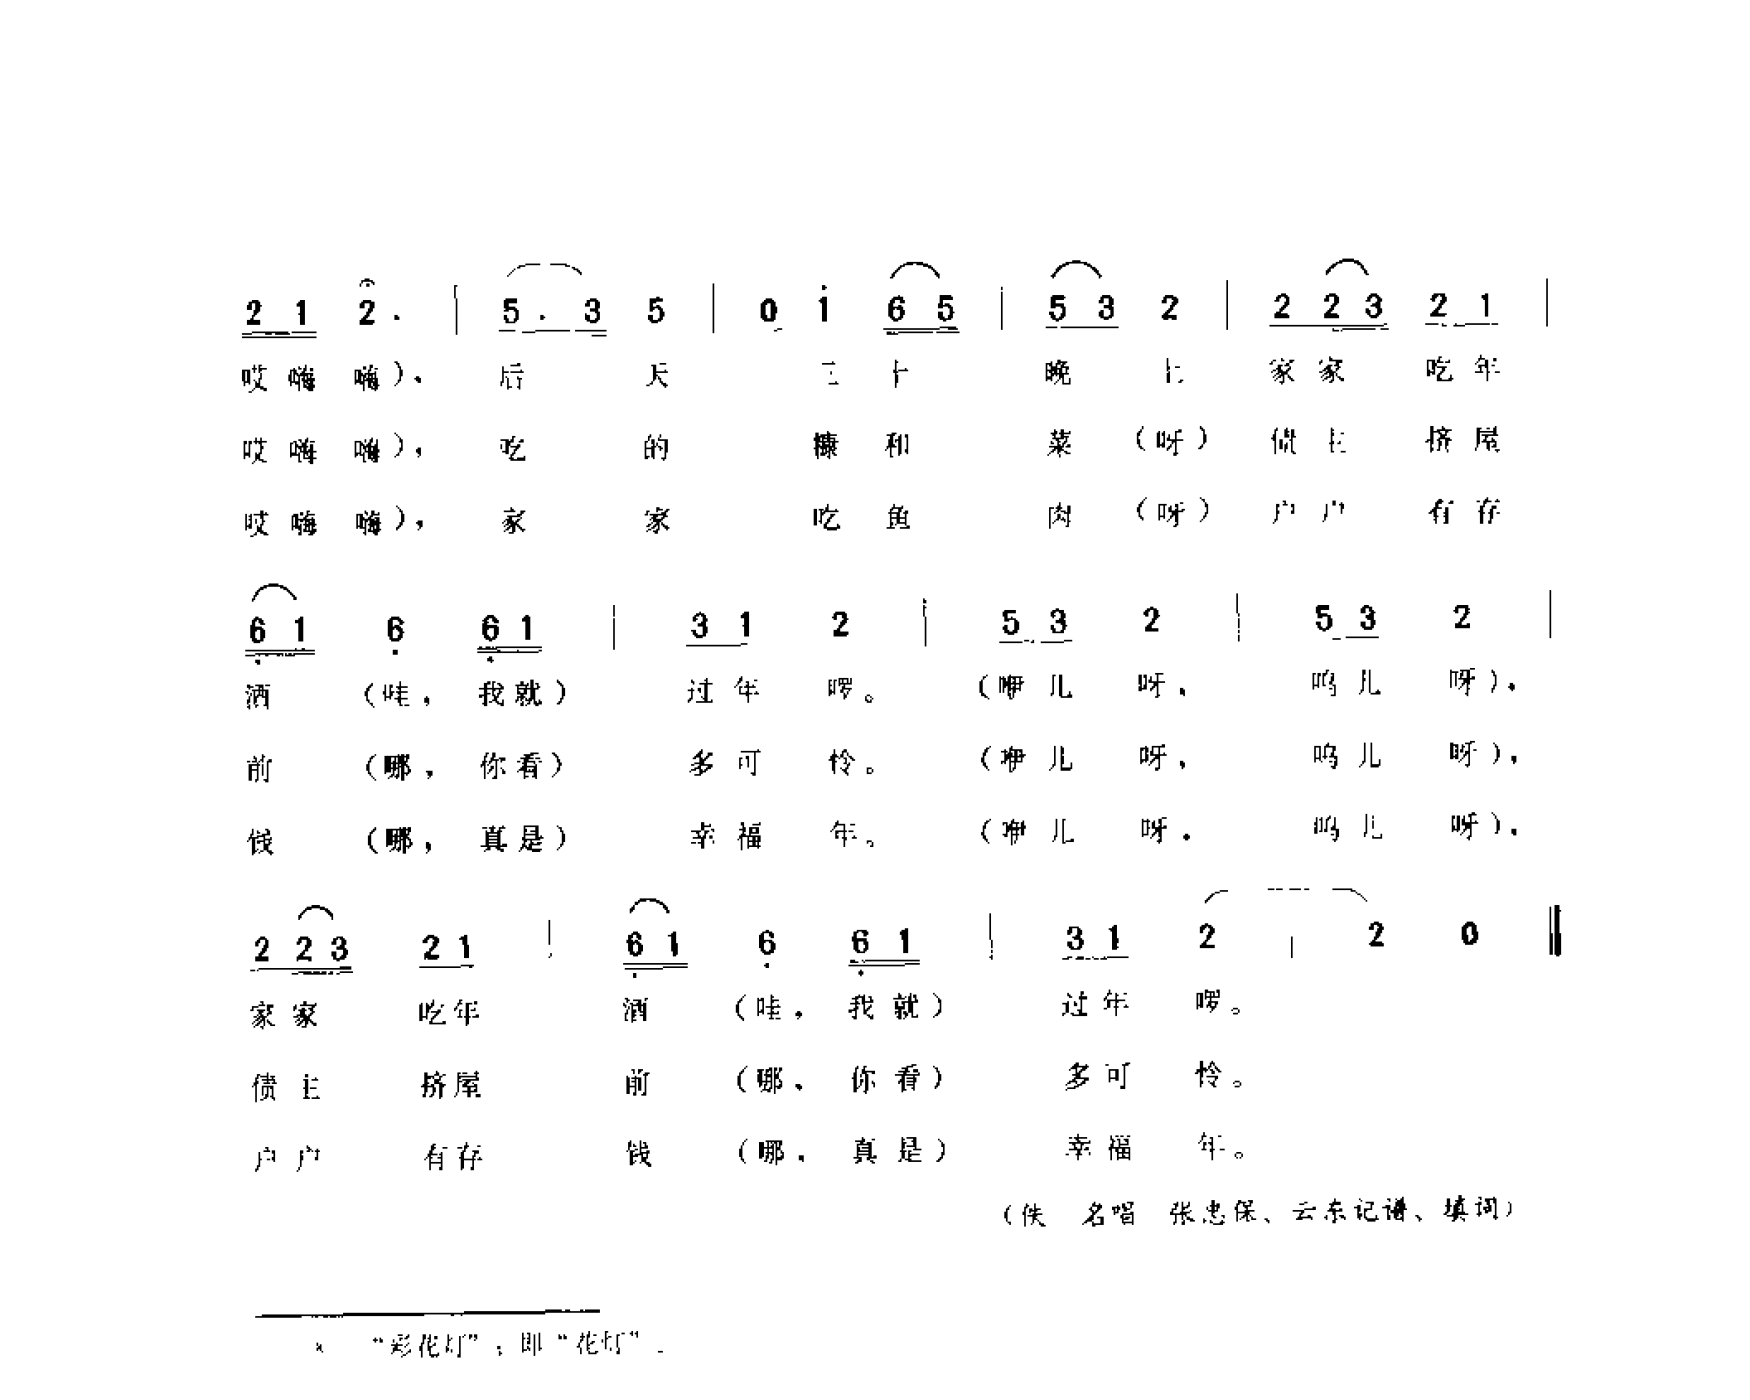 2 1 2. | 5. 3 5 | 0 1 6 5 | 5 3 2 | 2 2 3 2 1 |
哎 嗨 嗨）、 后 天 三 十 晚 上 家 家 吃 年
哎 嗨 嗨）， 吃 的 糠 和 菜 （呀） 债 主 挤 屋
哎 嗨 嗨）， 家 家 吃 鱼 肉 （呀） 户 户 有 存
6 1 6 6 1 | 3 1 2 | 5 3 2 | 5 3 2 |
酒 （哇，我就） 过 年 啰。 （咿 儿 呀、 呜 儿 呀）、
前 （哪，你看） 多 可 怜。 （咿 儿 呀、 呜 儿 呀），
钱 （哪，真是） 幸 福 年。 （咿 儿 呀． 呜 儿 呀）、
2 2 3 2 1 | 6 1 6 6 1 | 3 1 2 | 2 0 ‖
家 家 吃 年 酒 （哇，我 就） 过 年 啰。
债 主 挤 屋 前 （哪、你 看） 多 可 怜。
户 户 有 存 钱 （哪．真 是） 幸 福 年。
（佚 名唱 张忠保、云东记谱、填词）
* “彩花灯”：即“花灯”．